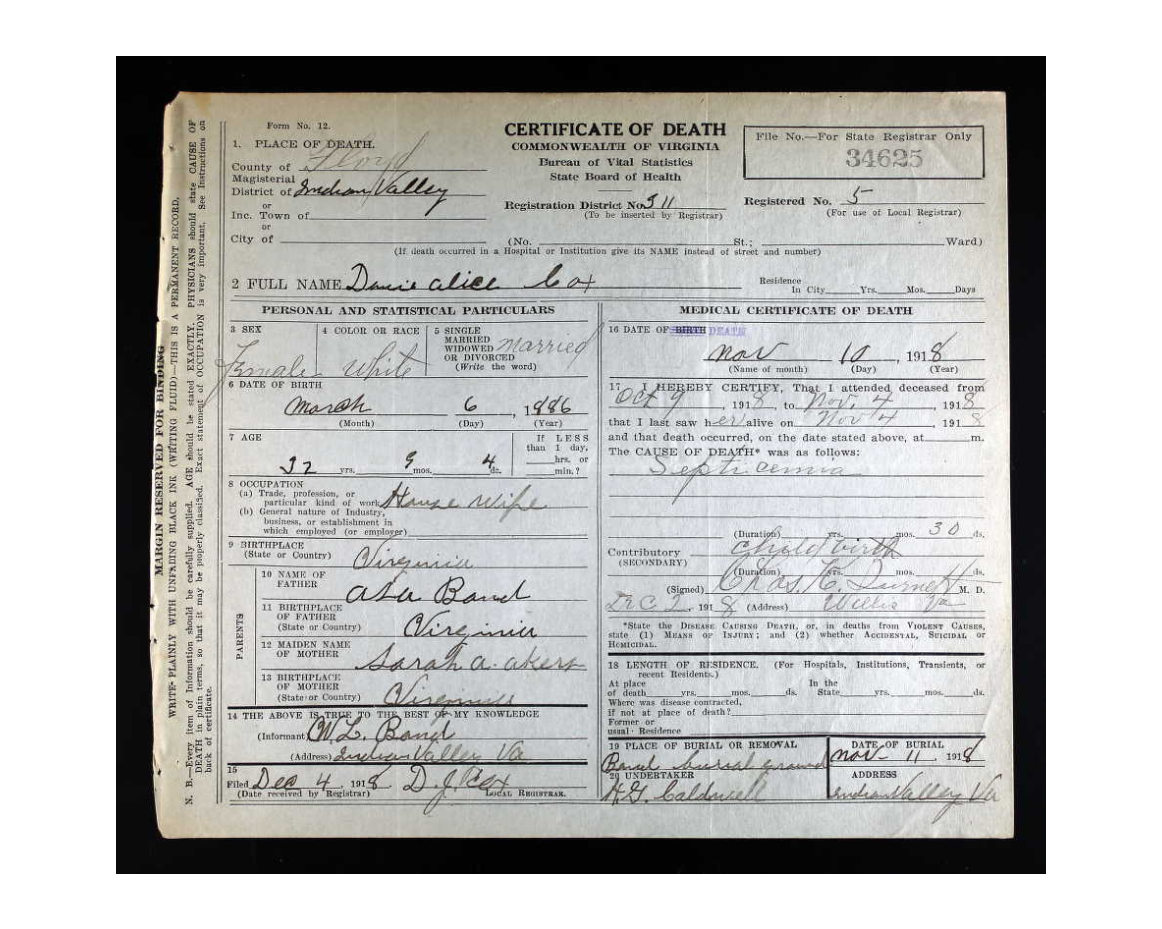 MARGIN RESERVED FOR BINDING
WRITE PLAINLY WITH UNFADING BLACK INK (WRITING FLUID)—THIS IS A PERMANENT RECORD.
N. B.—Every item of Information should be carefully supplied. AGE should be stated EXACTLY. PHYSICIANS should state CAUSE OF
DEATH in plain terms, so that it may be properly classified. Exact statement of OCCUPATION is very important. See Instructions on
back of certificate.
Form No. 12.
CERTIFICATE OF DEATH
COMMONWEALTH OF VIRGINIA
Bureau of Vital Statistics
State Board of Health
File No.—For State Registrar Only
34625
1. PLACE OF DEATH.
County of Floyd
Magisterial
District of Indian Valley
or
Inc. Town of
or
City of
Registration District No. 311
(To be inserted by Registrar)
Registered No. 5
(For use of Local Registrar)
(No. St.; Ward)
(If death occurred in a Hospital or Institution give its NAME instead of street and number)
2 FULL NAME Alice Cox
Residence
In City Yrs. Mos. Days
PERSONAL AND STATISTICAL PARTICULARS
3 SEX
Female
4 COLOR OR RACE
White
5 SINGLE
MARRIED
WIDOWED
OR DIVORCED
(Write the word)
married
6 DATE OF BIRTH
March 6, 1886
(Month) (Day) (Year)
7 AGE
32 yrs. 9 mos. 4 ds.
If LESS
than 1 day,
hrs. or
min.?
8 OCCUPATION
(a) Trade, profession, or
particular kind of work House Wife
(b) General nature of Industry,
business, or establishment in
which employed (or employer)
9 BIRTHPLACE
(State or Country) Virginia
PARENTS
10 NAME OF
FATHER Asa Bond
11 BIRTHPLACE
OF FATHER
(State or Country) Virginia
12 MAIDEN NAME
OF MOTHER Sarah A. Akers
13 BIRTHPLACE
OF MOTHER
(State or Country) Virginia
14 THE ABOVE IS TRUE TO THE BEST OF MY KNOWLEDGE
(Informant) W. L. Bond
(Address) Indian Valley Va
15
Filed Dec 4, 1918 D. J. Cox
(Date received by Registrar) LOCAL REGISTRAR.
MEDICAL CERTIFICATE OF DEATH
16 DATE OF BIRTH DEATH
Nov 10, 1918
(Name of month) (Day) (Year)
17 I HEREBY CERTIFY, That I attended deceased from
Oct 9, 1918, to Nov. 4, 1918
that I last saw her alive on Nov 4, 1918
and that death occurred, on the date stated above, at m.
The CAUSE OF DEATH* was as follows:
Septicemia
(Duration) yrs. mos. 30 ds.
Contributory Child birth
(SECONDARY)
(Duration) yrs. mos. ds.
(Signed) Chas. M. D.
Dec 2, 1918 (Address) Willis Va
*State the DISEASE CAUSING DEATH, or, in deaths from VIOLENT CAUSES,
state (1) MEANS OF INJURY; and (2) whether ACCIDENTAL, SUICIDAL or
HOMICIDAL.
18 LENGTH OF RESIDENCE. (For Hospitals, Institutions, Transients, or
recent Residents.)
At place In the
of death yrs. mos. ds. State yrs. mos. ds.
Where was disease contracted,
if not at place of death?
Former or
usual Residence
19 PLACE OF BURIAL OR REMOVAL
Bond burial ground
DATE OF BURIAL
Nov 11 1918
20 UNDERTAKER
H. G. Caldwell
ADDRESS
Indian Valley Va